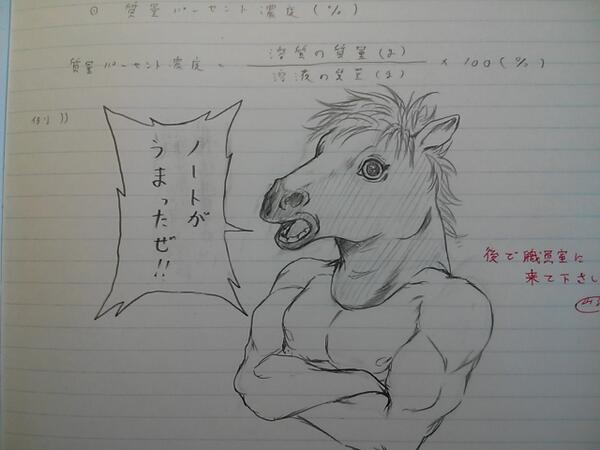 ① 質量パーセント濃度(%)
質量パーセント濃度 = 溶質の質量(g) / 溶液の質量(g) × 100(%)
例))
ノートが
うまったぜ!!
後で職員室に
来て下さい